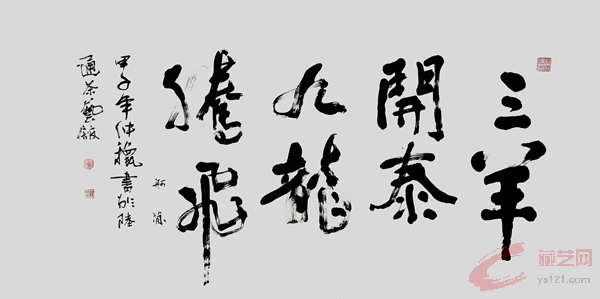 三羊
開泰
九龍
騰飛
甲子年仲穐書於陸
通茶藝館
藏艺网
ys121.com